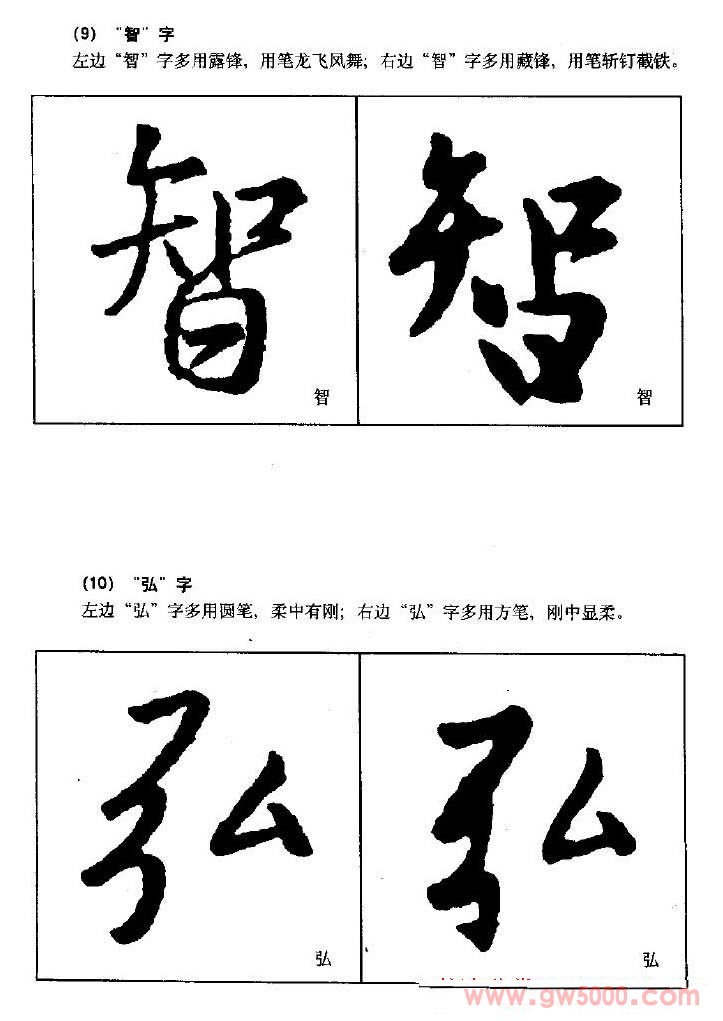 (9) “智”字
左边“智”字多用露锋，用笔龙飞凤舞；右边“智”字多用藏锋，用笔斩钉截铁。
智 智
智 智
(10) “弘”字
左边“弘”字多用圆笔，柔中有刚；右边“弘”字多用方笔，刚中显柔。
弘 弘
弘 弘
www.gw5000.com